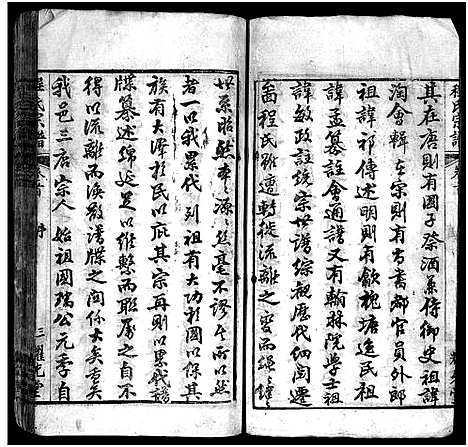 其在唐則有國子祭酒兼侍御史祖諱
淘會輯在宋則有尚書都官員外郎
祖諱祁傳述明則有歙槐塘逸民祖
諱孟纂註會通譜又有翰林院學士祖
諱敏政註統宗世譜綜觀歷代
程氏雖遭轉徙流離之變而
世系昭然本源絲毫不謬其所以然
者一以我累代列祖有大功於國以保其
族有大澤於民以庇其宗再則以累代譜
牒纂述綿延足以維繫而聯屬之不
得以流離而渙散譜牒之關係大矣重矣
我邑三居宗人 始祖國瑞公元季自
程氏宗譜
卷首
序
三